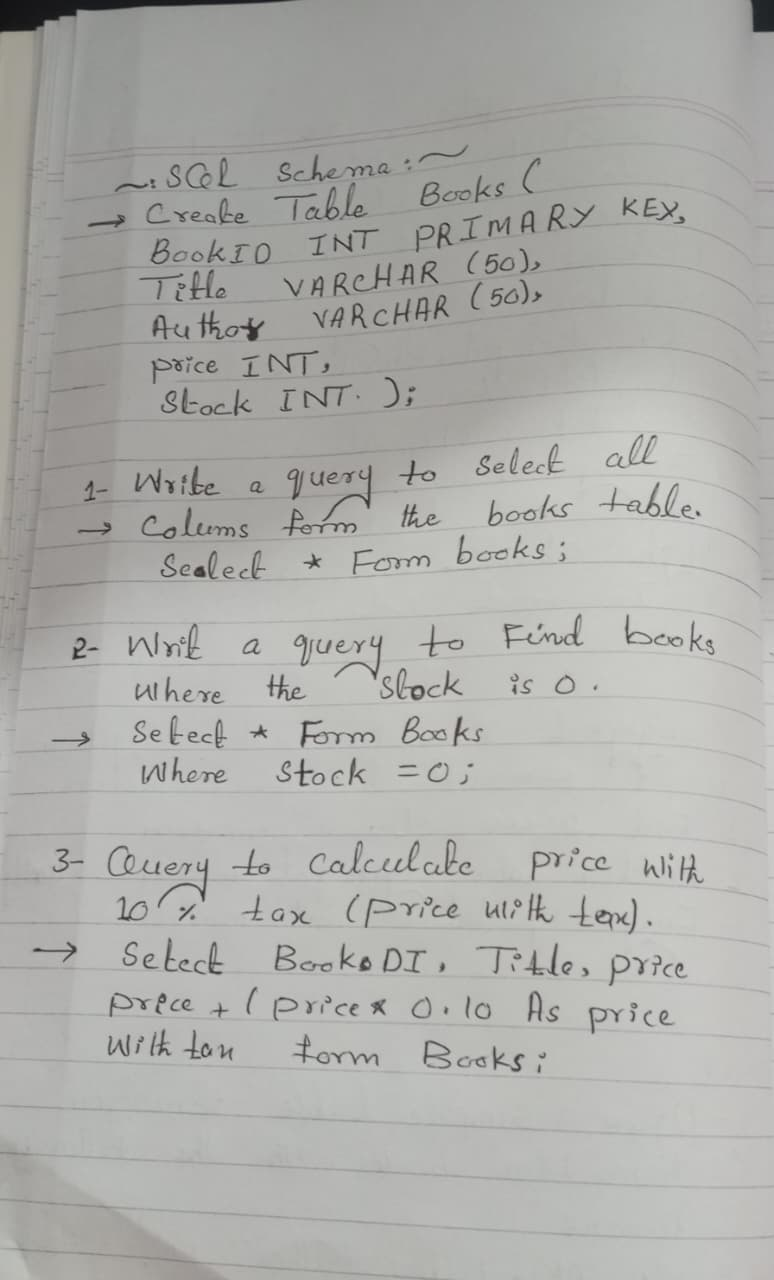 ~: SQL Schema :~
→ Create Table Books (
BookID INT PRIMARY KEY,
Title VARCHAR (50),
Author VARCHAR (50),
price INT,
Stock INT. );
1- Write a query to select all
→ Colums form the books table.
Sealect * Form books ;
2- Writ a query to Find books
where the stock is 0.
→ Select * Form Books
Where Stock = 0 ;
3- Query to calculate price with
10 % tax (price with tax).
→ Select BookDI, Title, price
price + ( price * 0.10 As price
With tax form Books ;